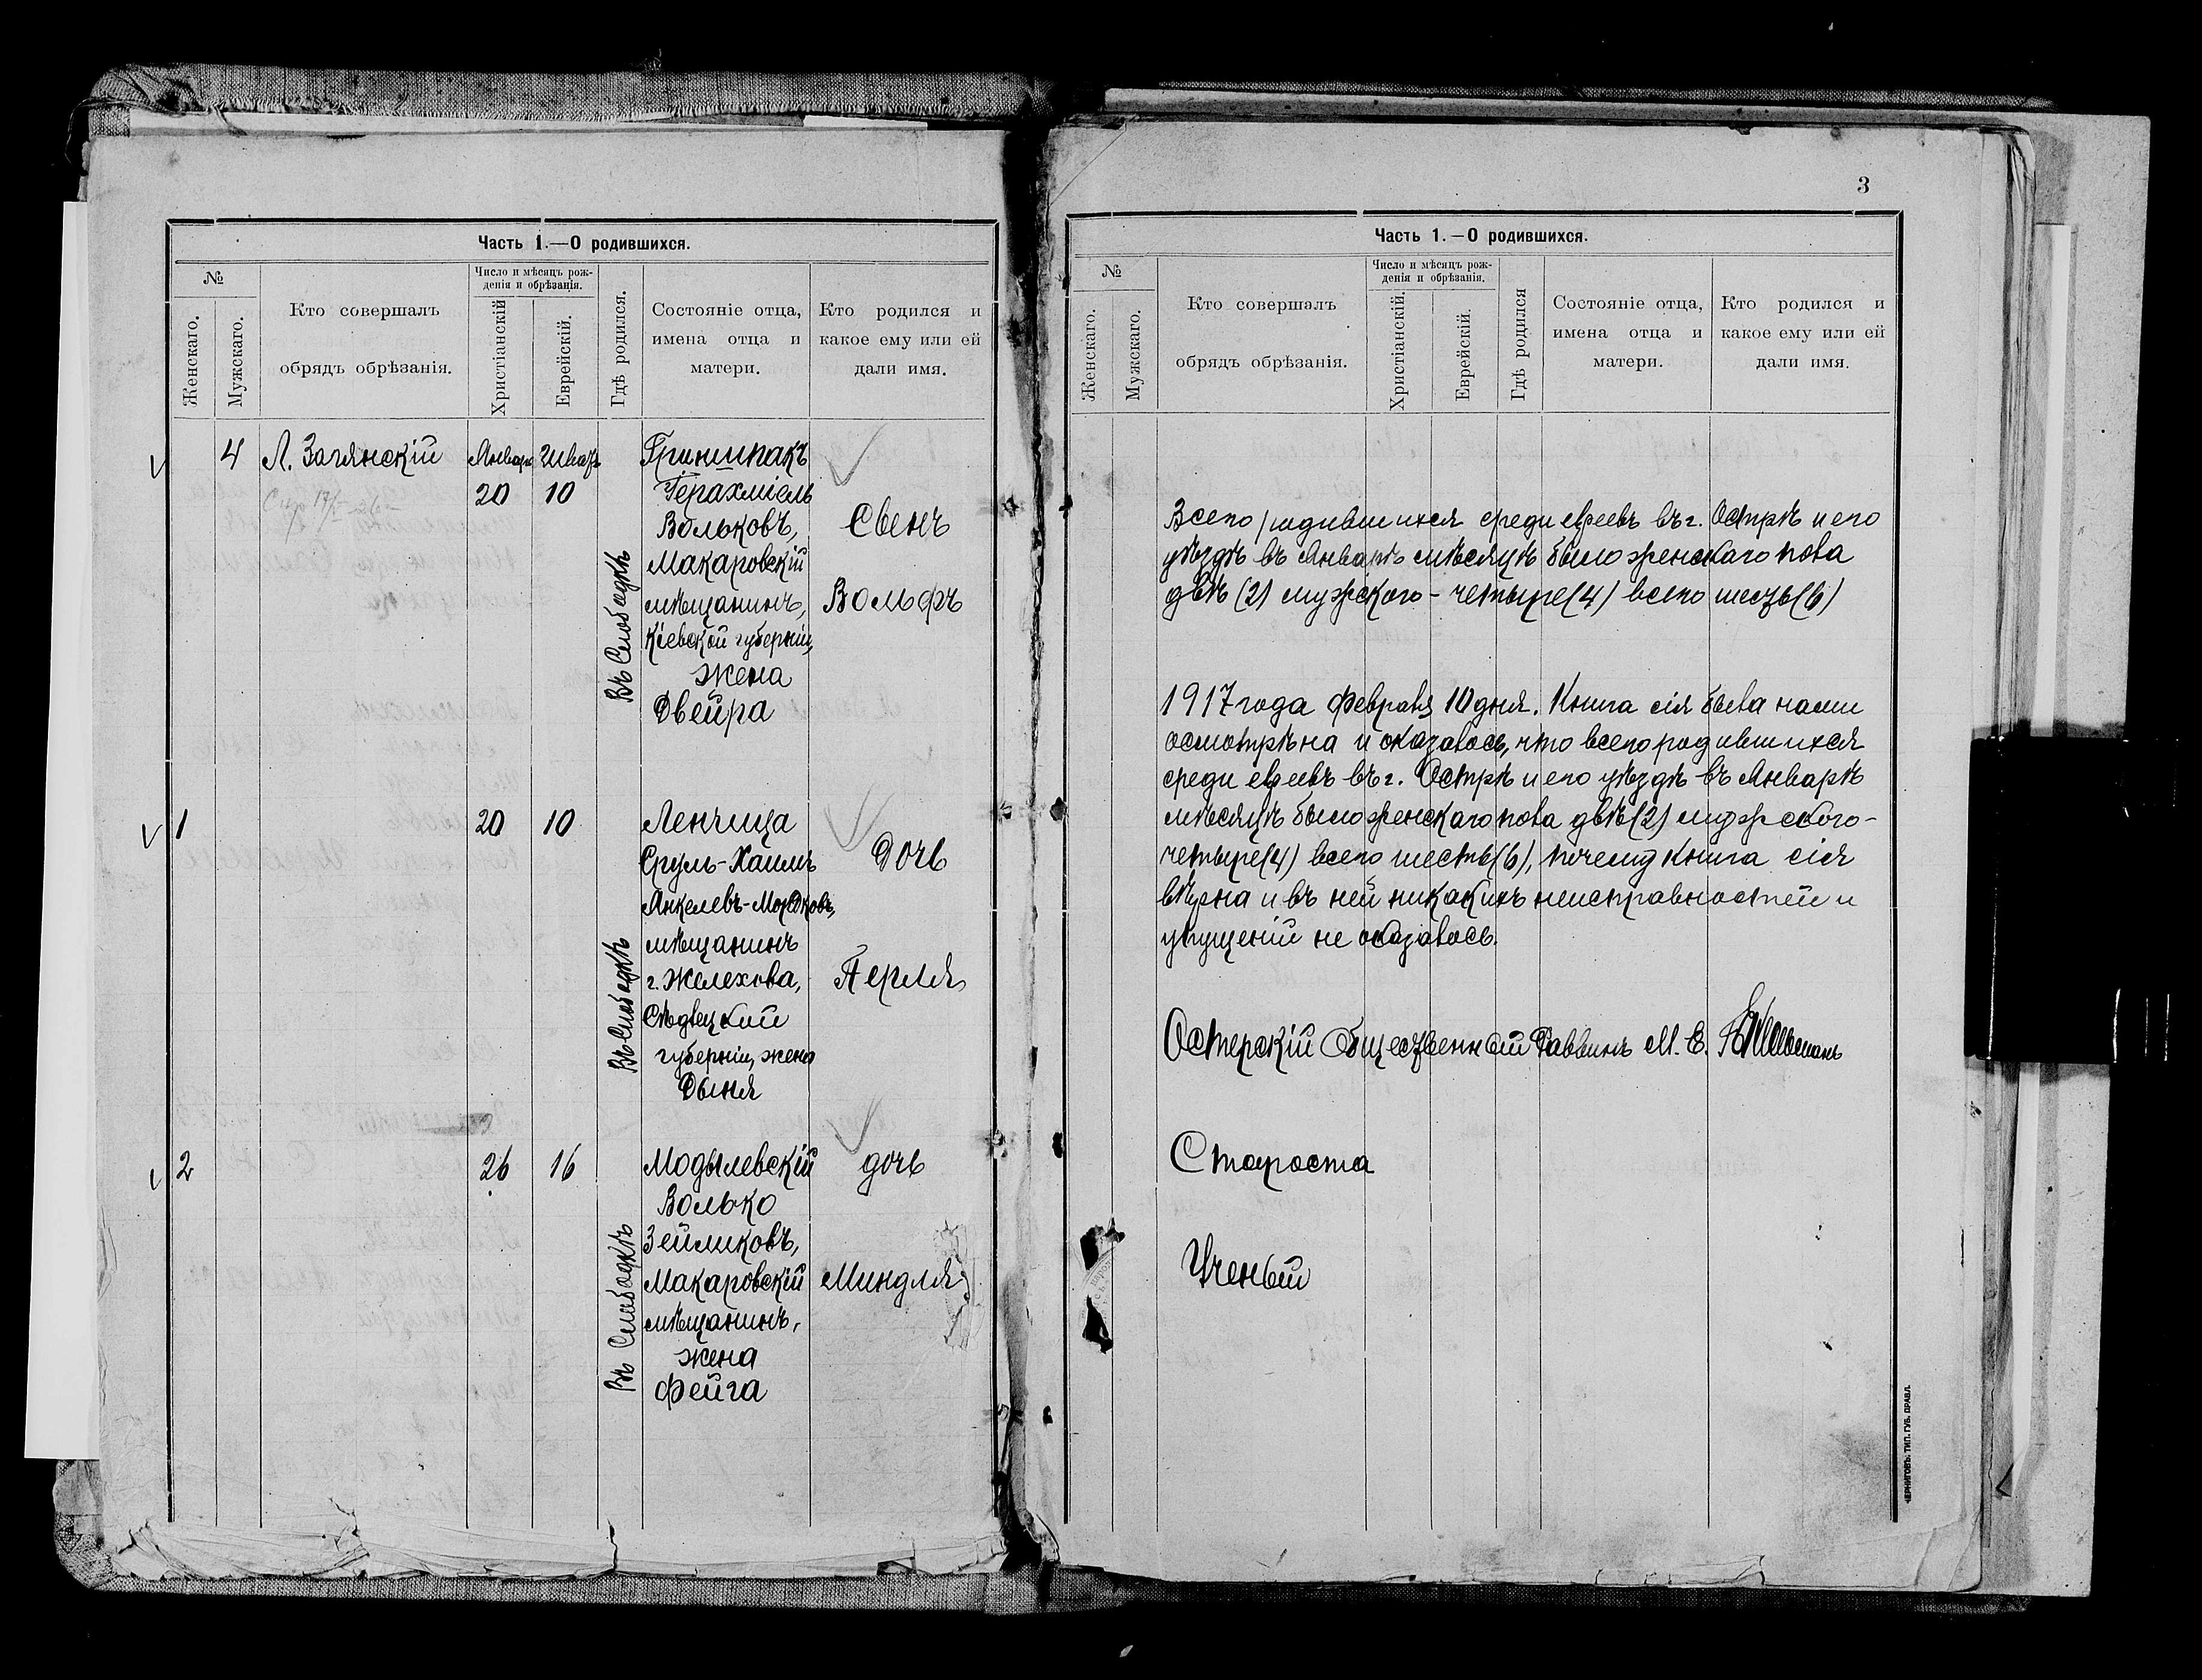 Часть 1.—О родившихся.
№
Женскаго.
Мужскаго.
Кто совершалъ
обрядъ обрѣзанія.
Число и мѣсяцъ рож-
денія и обрѣзанія.
Христіанскій
Еврейскій.
Гдѣ родился.
Состояніе отца,
имена отца и
матери.
Кто родился и
какое ему или ей
дали имя.
4 Л. Заглянскій Январ Шват Гриншпакъ
20 10 Іерахміель
Вольковъ, Свенъ
Макаровскій
мѣщанинъ, Вольфъ
Кіевской губерніи,
жена
Двейра
Въ Слободкѣ
1 20 10 Ленчица
Сруль-Хаимъ дочь
Янкелевъ-Мордковъ,
мѣщанинъ
г. Желехова, Перля
Сѣдлецкой
губерніи, жена
Дыня
Въ Слободкѣ
2 26 16 Модылевскій дочь
Волько
Зейликовъ,
Макаровскій Миндля
мѣщанинъ,
жена
Фейга
Въ Слободкѣ
3
Часть 1.—О родившихся.
№
Женскаго.
Мужскаго.
Кто совершалъ
обрядъ обрѣзанія.
Число и мѣсяцъ рож-
денія и обрѣзанія.
Христіанскій.
Еврейскій.
Гдѣ родился
Состояніе отца,
имена отца и
матери.
Кто родился и
какое ему или ей
дали имя.
Всего родившихся среди евреевъ въ г. Острѣ и его
уѣздѣ въ Январѣ мѣсяцѣ было женскаго пола
двѣ (2) мужского - четыре (4) всего шесть (6)
1917 года Февраля 10 дня. Книга сія была нами
осмотрѣна и оказалось, что всего родившихся
среди евреевъ въ г. Острѣ и его уѣздѣ въ Январѣ
мѣсяцѣ было женскаго пола двѣ (2) мужского-
четыре (4) всего шесть (6), почему книга сія
вѣрна и въ ней никакихъ неисправностей и
упущеній не оказалось.
Остерскій Общественный Раввинъ М. Е.
Староста
Ученый
ЧЕРНИГОВЪ. ТИП. ГУБ. ПРАВЛ.